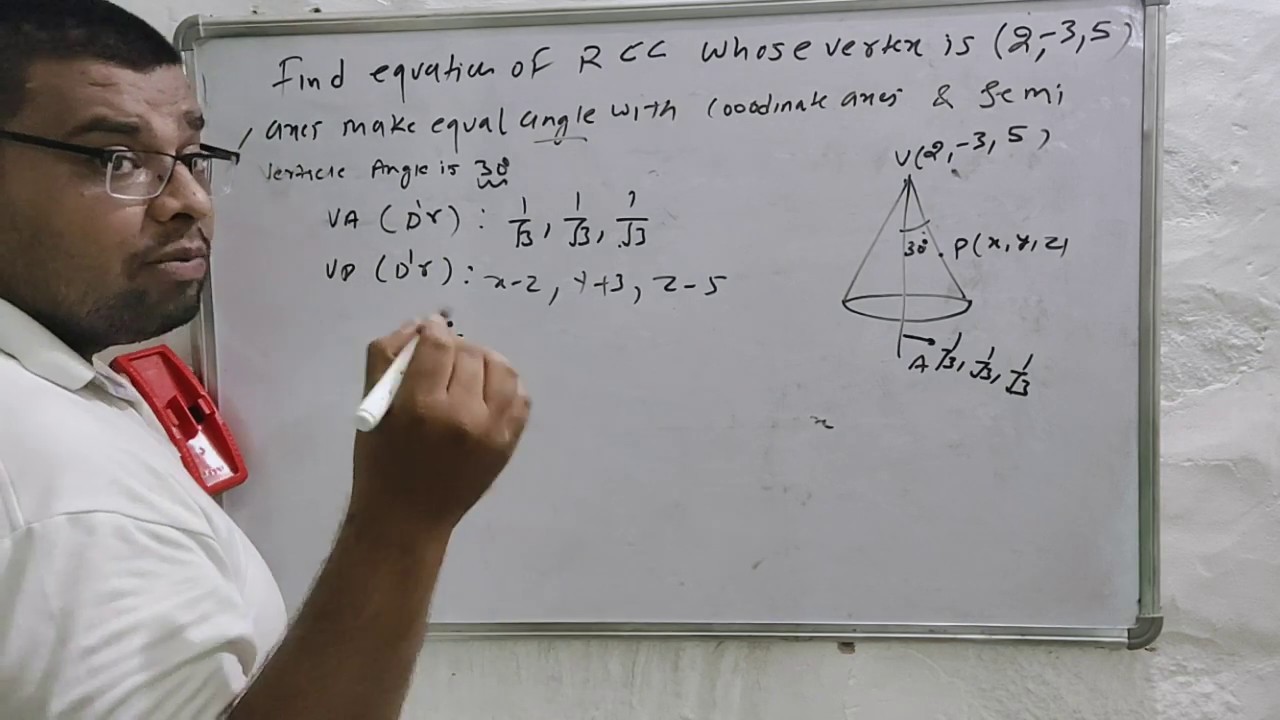 Find equation of RCC whose vertex is (2,-3,5)
axes make equal angle with Coodinate axes & Semi
Verticle Angle is 30°
VA (D'r) : 1/√3, 1/√3, 1/√3
VP (D'r) : x-2, y+3, z-5
V(2,-3,5)
30°
P(x,y,z)
A 1/√3, 1/√3, 1/√3
x